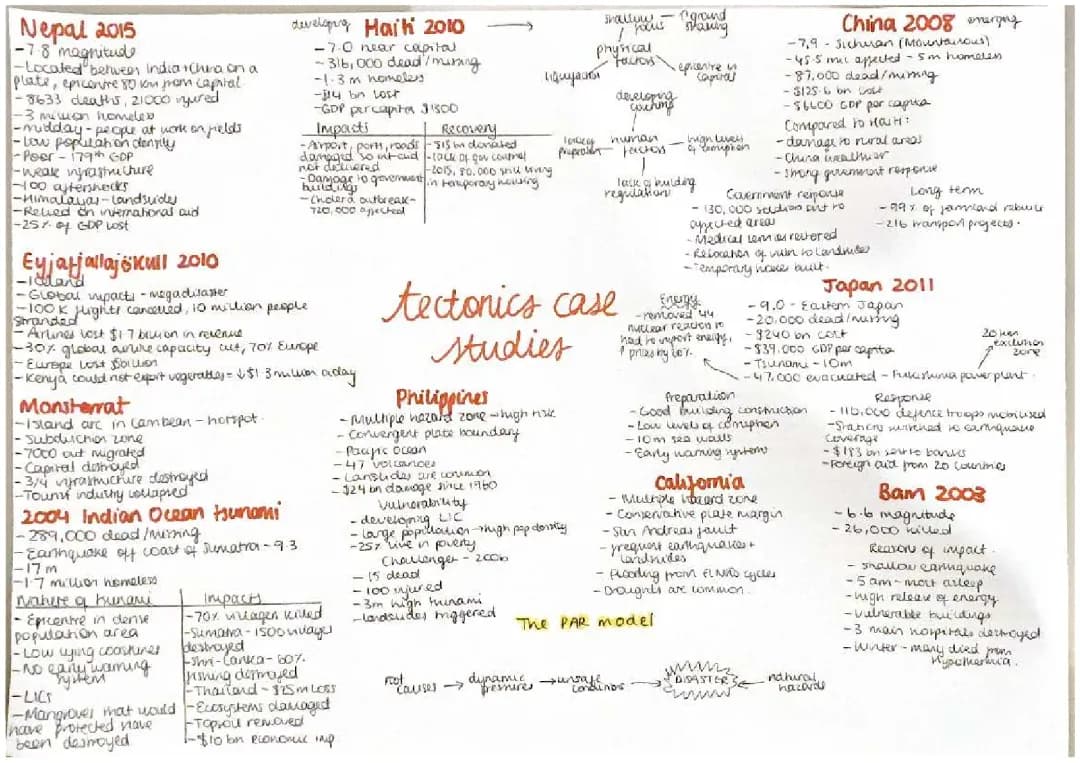 Nepal 2015
-7.8 magnitude
-Located between India + China on a
plate, epicentre 80 km from capital
-8633 deaths, 21000 injured
-3 million homeless
-midday - people at work on fields
-Low population density
-Poor - 179th GDP
-weak infrastructure
-100 aftershocks
-Himalayas - landslides
-Relied on international aid
-25% of GDP lost
developing
Haiti 2010
-7.0 near capital
-316,000 dead/missing
-1.3m homeless
-$14 bn lost
-GDP per capita $1300
Impacts
-Airport, ports, roads
damaged so int-aid
not delivered
-Damage to government
buildings
-Cholera outbreak-
720,000 affected
Recovery
-$15 bn donated
-lack of gov control
-2015, 80,000 still living
in temporary housing
shallow focus
↑ ground shaking
physical factors
liquefaction
epicentre in capital
developing country
human factors
lack of preparation
high levels of corruption
lack of building regulation
China 2008
emerging
-7.9 - Sichuan (Mountainous)
-45.5 mil affected - 5m homeless
-87,000 dead/missing
-$125.6 bn cost
-$6400 GDP per capita
Compared to Haiti:
-damage to rural areas
-China wealthier
-strong government response
Government response
-130,000 soldiers sent to
affected areas
-Medical services restored
-Relocation of vuln to landslides
-Temporary homes built.
Long term
-99% of farmland rebuilt
-216 transport projects.
Eyjafjallajökull 2010
-Iceland
-Global impacts - megadisaster
-100K flights cancelled, 10 million people
stranded
-Airlines lost $1.7 billion in revenue
-30% global airline capacity cut, 70% Europe
-Europe lost $5billion
-Kenya could not export vegetables = ↓$1.3 million a day
tectonics case
studies
Energy
-removed 44
nuclear reactors so
had to import energy,
↑ prices by 60%.
Japan 2011
-9.0 - Eastern Japan
-20,000 dead/missing
-$240 bn cost
-$39,000 GDP per capita
-Tsunami - 10m
-47,000 evacuated - Fukushima power plant.
20 km
exclusion
zone
Preparation
-Good building construction
-Low levels of corruption
-10m sea walls
-Early warning systems
Response
-110,000 defence troops mobilised
-Stations switched to earthquake
coverage
-$183 bn sent to banks
-Foreign aid from 20 countries
Monsterrat
-Island arc in Carribean - hotspot.
-Subduction zone
-7000 out migrated
-Capital destroyed
-3/4 infrastructure destroyed
-Tourist industry collapsed
Philippines
-Multiple hazard zone - high risk
-Convergent plate boundary
-Pacific Ocean
-47 volcanoes
-Landslides are common
-$24 bn damage since 1960
Vulnerability
-developing LIC
-Large population → high pop density
-25% live in poverty
Challenges - 2006
-15 dead
-100 injured
-3m high tsunami
-landslides triggered
California
-Multiple hazard zone
-Conservative plate margin
-San Andreas fault
-frequent earthquakes +
landslides
-flooding from El Niño cycles
-Droughts are common.
Bam 2003
-6.6 magnitude
-26,000 killed
Reasons of impact.
-shallow earthquake
-5am - most asleep
-high release of energy
-vulnerable buildings
-3 main hospitals destroyed
-Winter - many died from
hypothermia.
2004 Indian Ocean tsunami
-289,000 dead/missing
-Earthquake off coast of Sumatra - 9.3
-17m
-1.7 million homeless
Nature of tsunami
-Epicentre in dense
population area
-Low lying coastlines
-No early warning
system
-LICs
-Mangroves that would
have protected have
been destroyed
Impacts
-70% villagers killed
-Sumatra - 1500 villages
destroyed
-Shri-Lanka - 60%
fishing destroyed
-Thailand - $25m loss
-Ecosystems damaged
-Topsoil removed
-$10 bn economic imp
The PAR model
root causes → dynamic pressures → unsafe conditions → DISASTER ← natural hazards